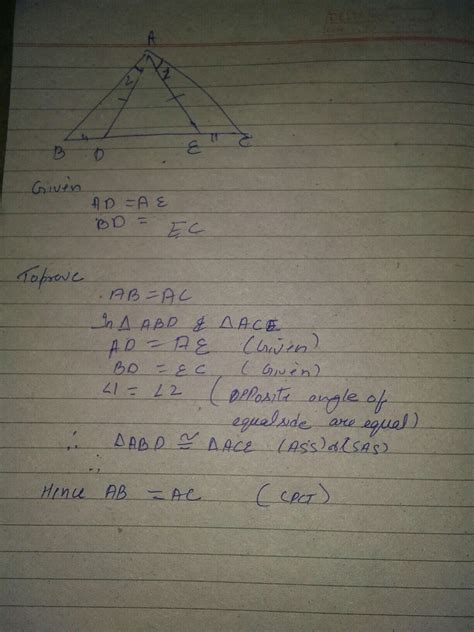 A
2 1
B D E C
Given
AD = AE
BD = EC
Toprove
AB = AC
In △ ABD & △ACE
AD = AE (Given)
BD = EC (Given)
∠1 = ∠2 (opposite angle of
equalside are equal)
∴ △ABD ≅ △ACE (ASS) or (SAS)
∴
Hence AB = AC (CPCT)